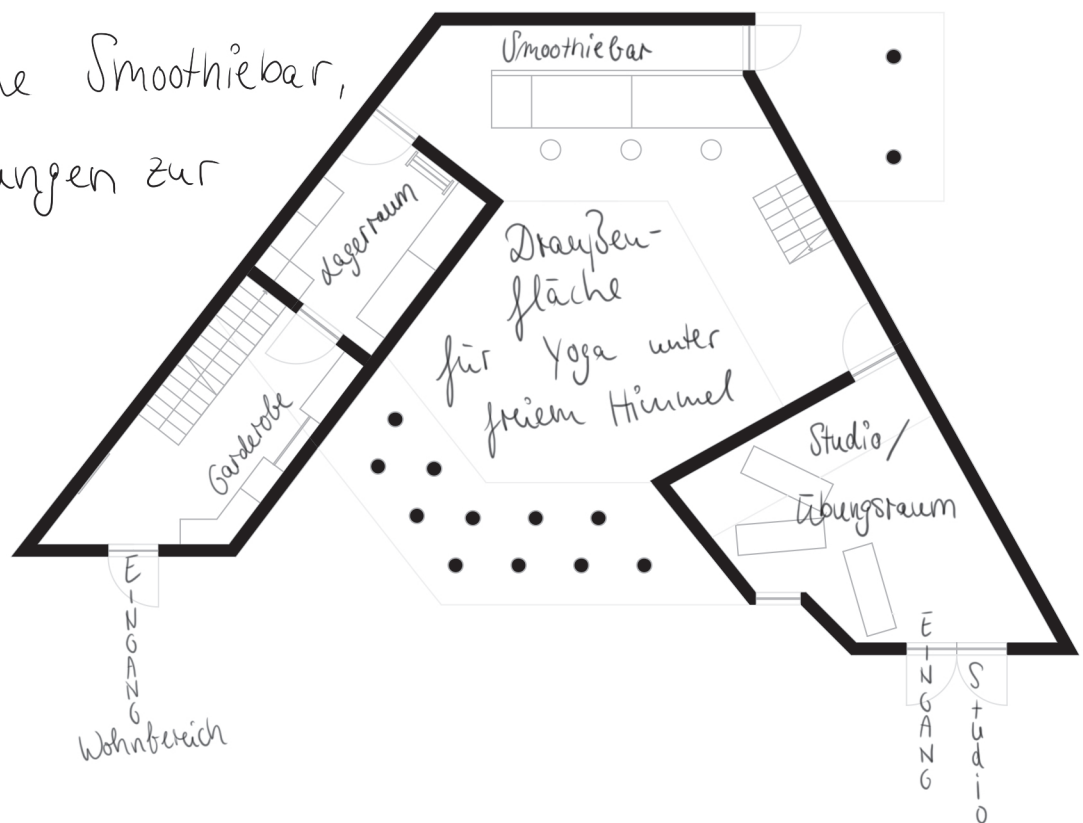 Smoothiebar,
zur
Smoothiebar
Lagerraum
Draußen-
fläche
für Yoga unter
freiem Himmel
Garderobe
Studio/
Übungsraum
EINGANG
Wohnbereich
EINGANG
Studio